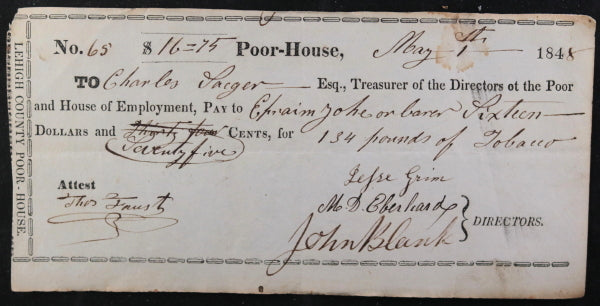 LEHIGH COUNTY POOR-HOUSE.
No. 65 $ 16=75 Poor-House, May 1st 1848
TO Charles Saeger Esq., Treasurer of the Directors of the Poor
and House of Employment, PAY to Efraim Yohe or barer Sixteen
DOLLARS and Thirty four CENTS, for 134 pounds of Tobacco
Seventy five
Jesse Grim
Attest
M. D. Eberhard
Thos Faust
DIRECTORS.
John Blank
8